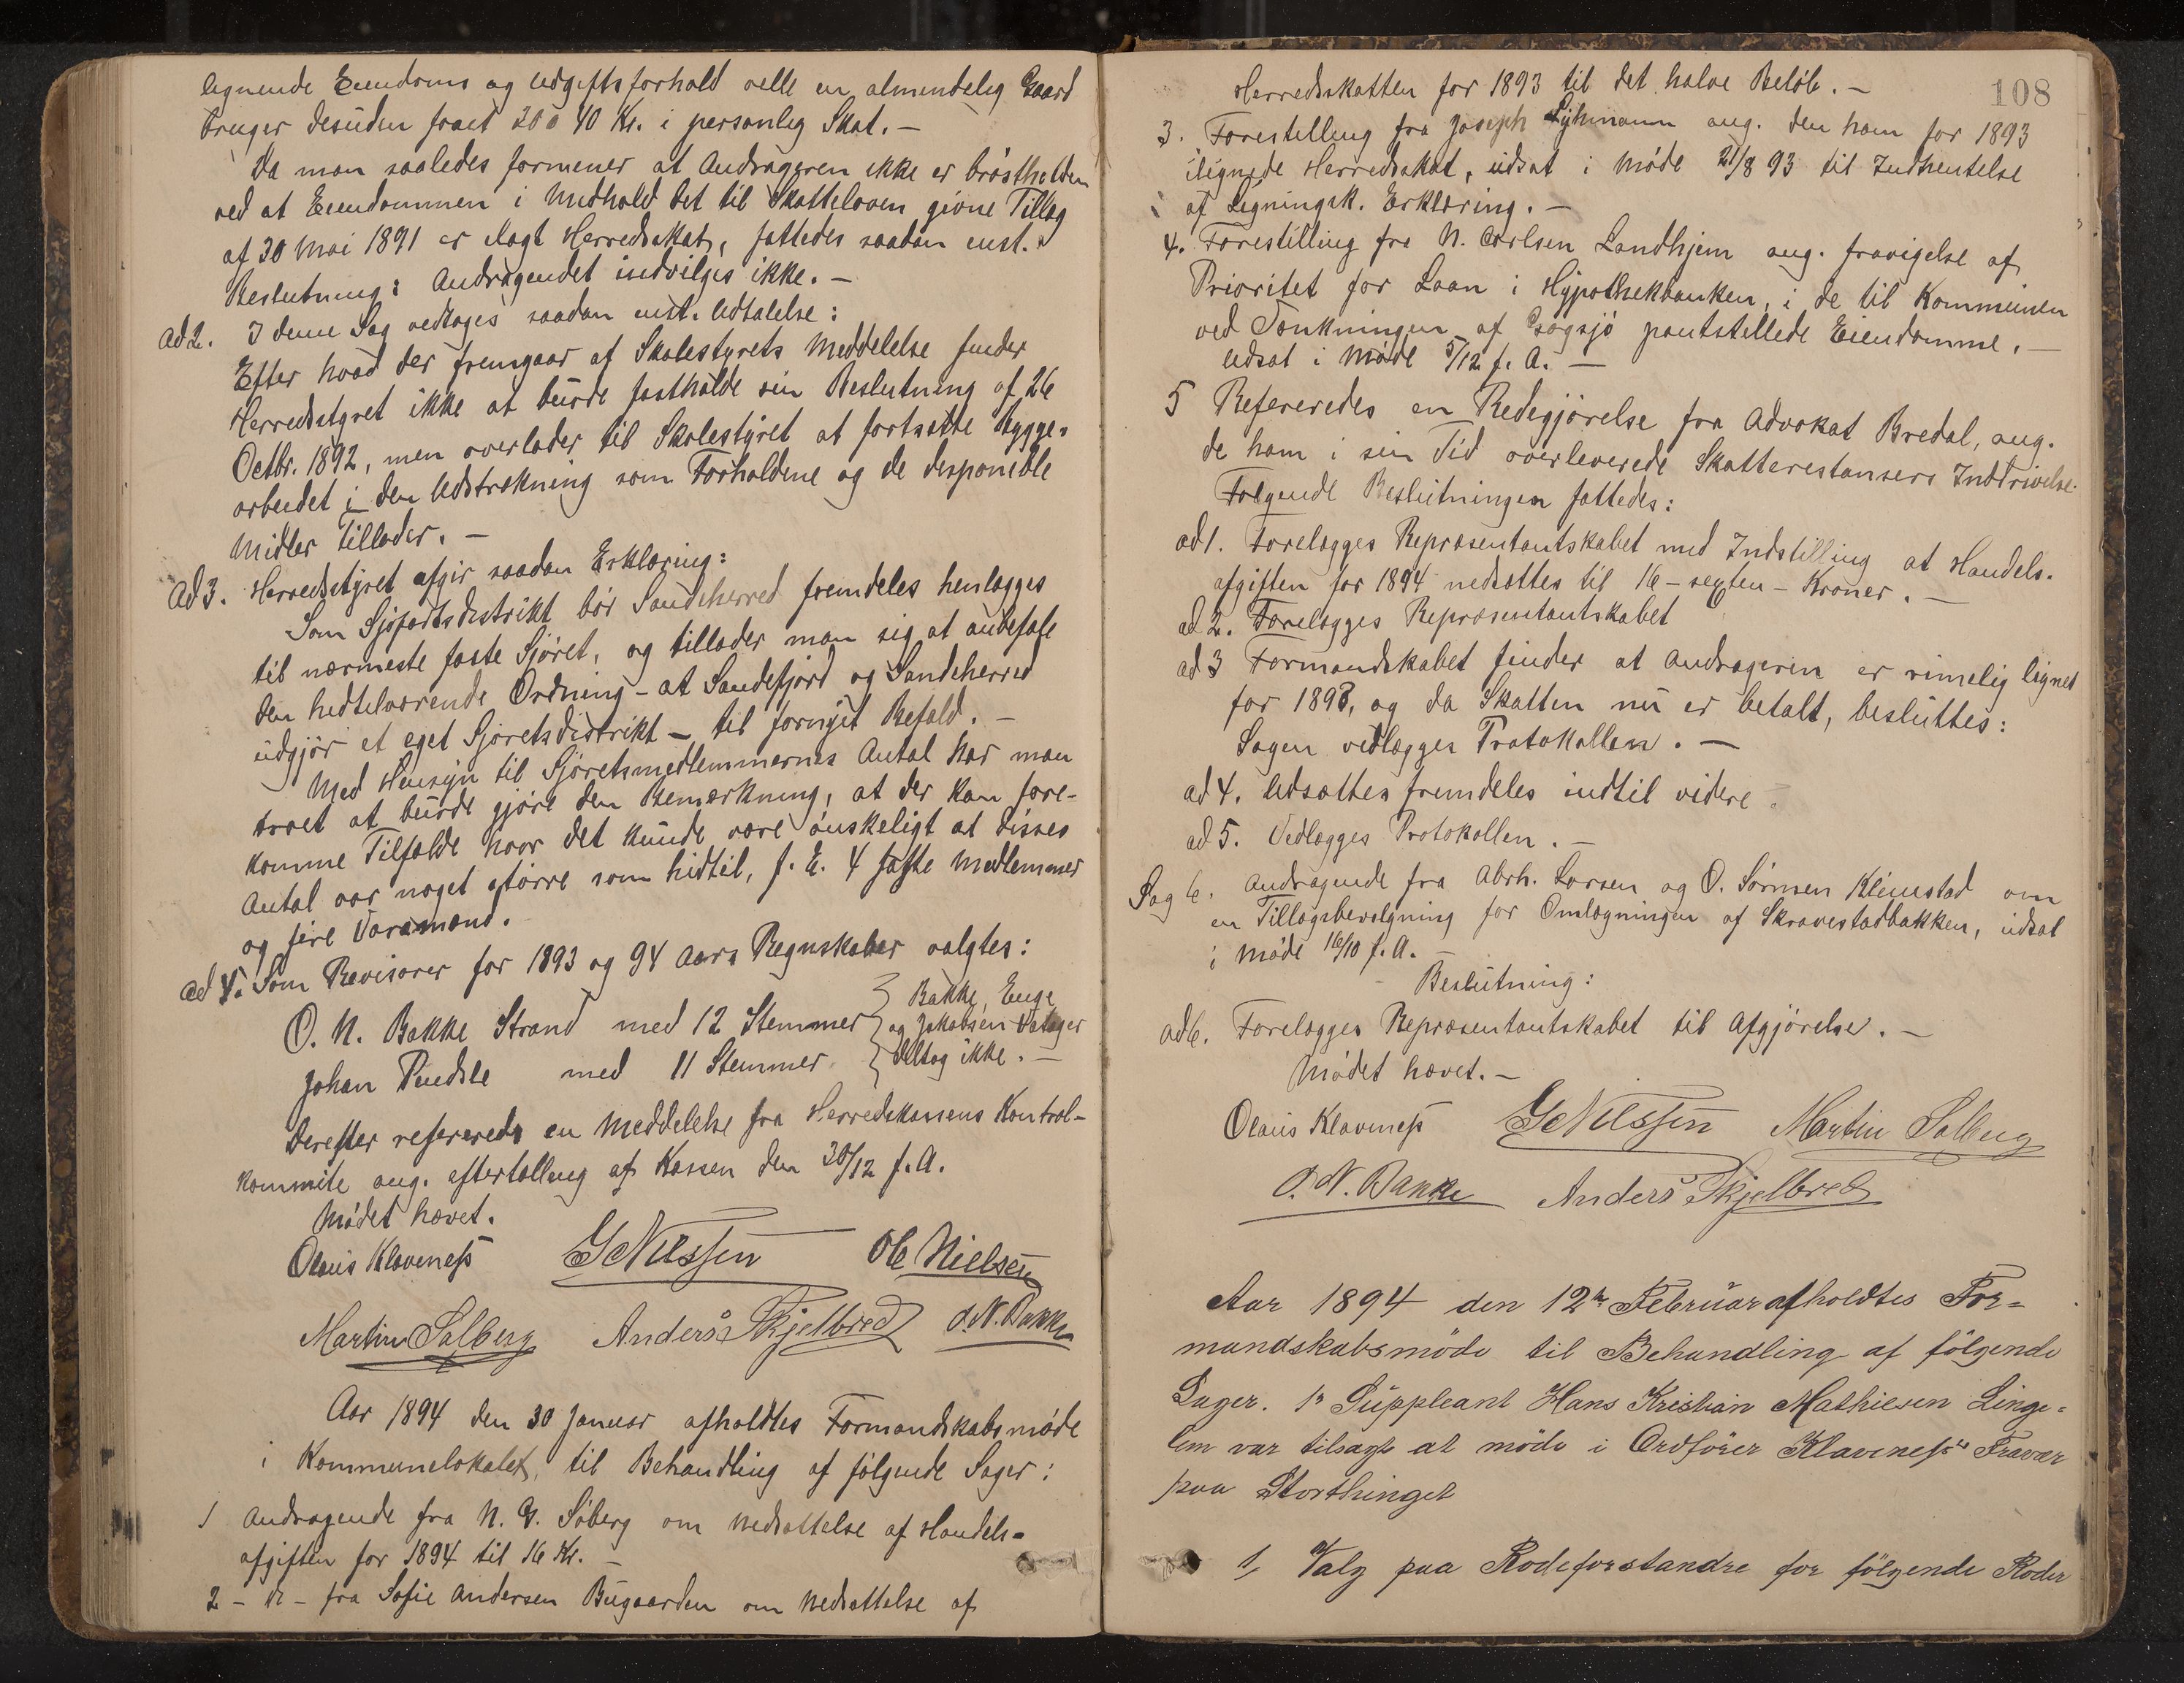 lignende Eiendoms og Udgiftsforhold vilde en almindelig Gaard
bruger desuden faaet 20 à 40 Kr. i personlig Skat. —
Da man saaledes formener at Andrageren ikke er brøstholden
ved at Eiendommen i Medhold det til Skatteloven givne Tillæg
af 30 Mai 1891 er ilagt Herredsskat, fattedes saadan enst.
Beslutning: Andragendet indvilges ikke. —
ad 2. I denne Sag vedtoges saadan enst. Udtalelse:
Efter hvad der fremgaar af Skolestyrets Meddelelse finder
Herredsstyret ikke at burde fastholde sin Beslutning af 26
Octbr. 1892, men overlader til Skolestyret at fortsætte Bygge-
arbeidet i den Udstrækning som Forholdene og de disponible
Midler tillader. —
Ad 3. Herredsstyret afgir saadan Erklæring:
Som Sjøfartsdistrikt bør Sandeherred fremdeles henlægges
til nærmeste faste Sjøret, og tillader man sig at anbefale
den hidtilværende Ordning – at Sandefjord og Sandeherred
udgjør et eget Sjøretsdistrikt – til fornyet Befald. —
Med Hensyn til Sjøretsmedlemmernes Antal har man
troet at burde gjøre den Bemærkning, at der kan fore-
komme Tilfælde hvor det kunde være ønskeligt at disses
Antal var noget større som hidtil, f. E. 4 faste Medlemmer
og fire Varamænd.
ad 4. Som Revisorer for 1893 og 94 Aars Regnskaber valgtes:
O. N. Bakke Strand med 12 Stemmer } Bakke, Enge
og Jakobsen
Johan Pindsle med 11 Stemmer. } deltog ikke. —
Derefter refereredes en Meddelelse fra Herredskassens Kontrol-
kommite ang. eftertælling af Kassen den 30/12 f. A.
Mødet hævet.
Olaus Klaveness G Nilssen Ole Nielsen
Martin Salberg Anders Skjelbred O. N. Bakke
Aar 1894 den 30 Januar afholdtes Formandskabsmøde
i Kommunelokalet, til Behandling af følgende Sager:
1 Andragende fra N. G. Søberg om Nedsættelse af Handels-
afgiften for 1894 til 16 Kr. —
2 – do – fra Sofie Andersen Bugaarden om Nedsættelse af
108
Herredsskatten for 1893 til det halve Beløb. —
3. Forestilling fra Joseph Lyhmann ang. den ham for 1893
ilignede Herredsskat, udsat i Møde 21/8 93 til Indhentelse
af Ligningsk. Erklæring. —
4. Forestilling fra N. Carlsen Landhjem ang. fravigelse af
Prioritet for Laan i Hypothekbanken, i de til Kommunen
ved Sænkningen af Gogsjø pantstillede Eiendomme. —
Udsat i Møde 5/12 f. A. —
5 Refereredes en Redegjørelse fra Advokat Bredal, ang.
de ham i sin Tid overleverede Skatterestansers Inddrivelse.
Følgende Beslutninger fattedes:
ad 1. Forelægges Repræsentantskabet med Indstilling at Handels-
afgiften for 1894 nedsættes til 16 – sexten – Kroner. —
ad 2. Forelægges Repræsentantskabet
ad 3 Formandskabet finder at Andrageren er rimelig lignet
for 1893, og da Skatten nu er betalt, besluttes:
Sagen vedlægges Protokollen. —
ad 4. Udsættes fremdeles indtil videre.
ad 5. Vedlægges Protokollen. —
Sag 6. Andragende fra Abrh. Larsen og O. Sørensen Klinestad om
en Tillægsbevilgning for Omlægningen af Skravestadbakken, udsat
i Møde 16/10 f. A. —
Beslutning:
ad 6. Forelægges Repræsentantskabet til Afgjørelse. —
Mødet hævet. —
Olaus Klaveness G Nilssen Martin Salberg
O. N. Bakke Anders Skjelbred
Aar 1894 den 12te Februar afholdtes For-
mandskabsmøde til Behandling af følgende
Sager. 1ste Suppleant Hans Kristian Mathiesen Linge-
lem var tilsagt at møde i Ordfører Klaveness's Fravær
paa Storthinget
1, Valg paa Rodeforstandre for følgende Roder